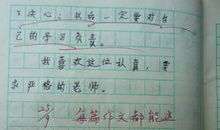 下决心：以后一定要对自
己的学习负责。
我喜欢这位认真，要
求严格的老师。
25/9 每篇作文都能这